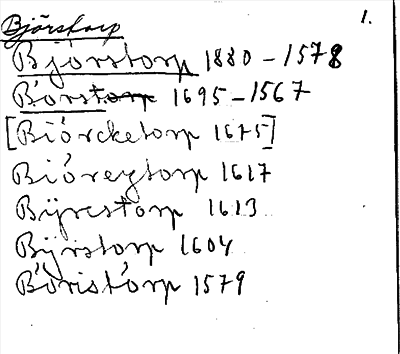 Björstorp
1.
Björstorp 1880-1578
Börstorp 1695-1567
[Biórcketorp 1675]
Bióregtorp 1617
Bijrestorp 1613
Bijrstorp 1604
Böristorp 1579